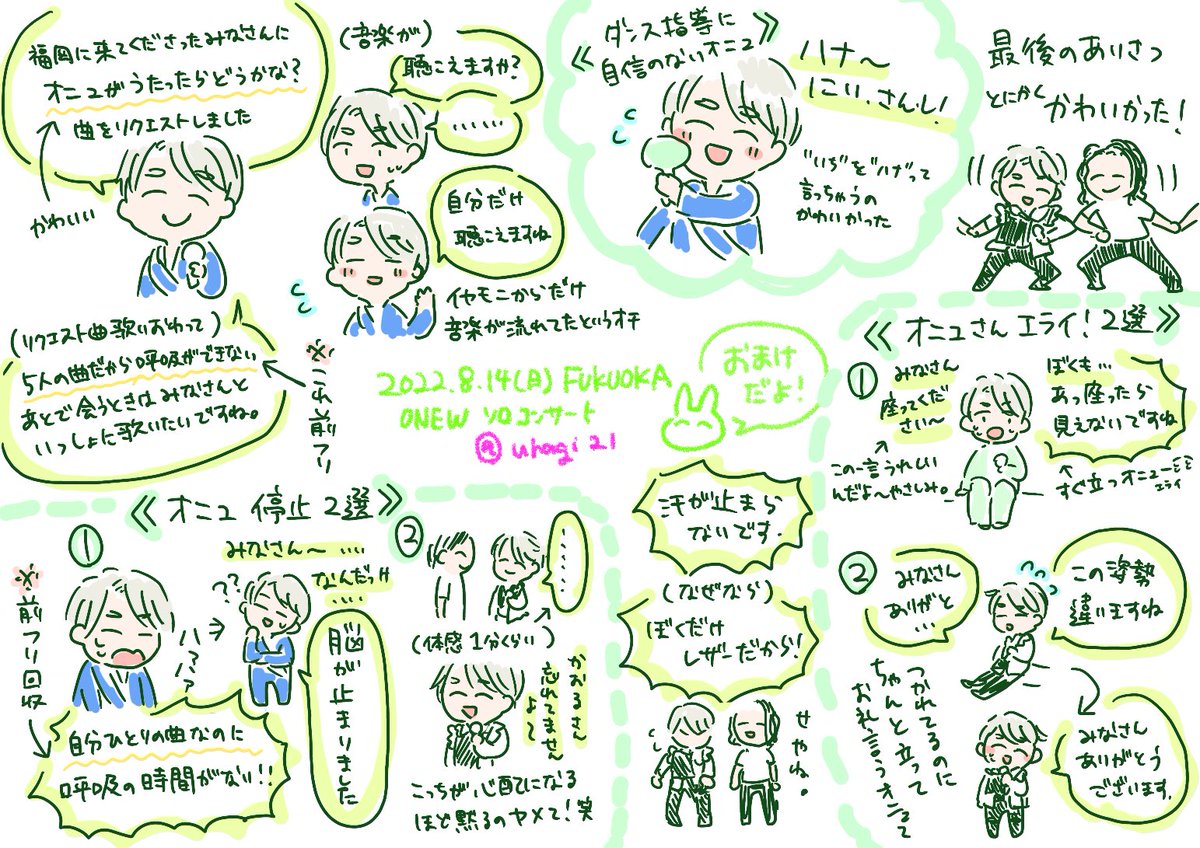 福岡に来てくださったみなさんに
オニュがうたったらどうかな?
曲をリクエストしました
かわいい
(音楽が)
聴こえますか?
......
自分だけ
聴こえますね
イヤモニからだけ
音楽が流れてたというオチ
(リクエスト曲歌いおわって)
5人の曲だから呼吸ができない
あとで会うときはみなさんと
いっしょに歌いたいですね。
※これ前フリ
《ダンス指導に
自信のないオニュ》
ハナ〜
にぃ、さんし!
"いち"を"ハナ"って
言っちゃうの
かわいかった
最後のあいさつ
とにかくかわいかった!
2022.8.14(月) FUKUOKA
ONEW ソロコンサート
@uhagi21
おまけ
だよ!
《オニュ 停止 2選》
①
みなさん〜 ....
なんだっけ
....
??
ハァ
???
脳が止まりました
※前フリ回収
自分ひとりの曲なのに
呼吸の時間がない!!
②
......
(体感1分くらい)
かおるさん
忘れてません
よ〜
こっちが心配になる
ほど黙るのヤメて!笑
汗が止まら
ないです.
(なぜなら)
ぼくだけ
レザーだから!
せやね。
《オニュさん エライ! 2選》
①
みなさん
座ってくだ
さい〜
この一言うれしい
んだよ〜やさしみ。
ぼくも...
あっ座ったら
見えないですね
すぐ立つオニュ
エライ
②
みなさん
ありがと
...
この姿勢
違いますね
みなさん
ありがとう
ございます.
つかれてるのに
ちゃんと立って
お礼言うオニュ